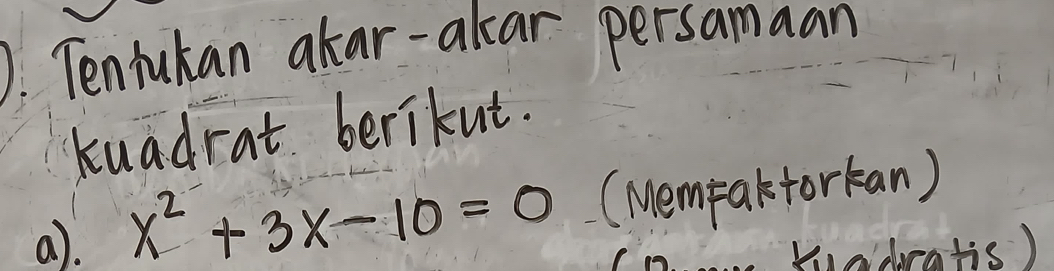 ). Tentukan akar-akar persamaan
kuadrat berikut.
a). x² + 3x - 10 = 0 (Memfaktorkan)
Kuadratis)